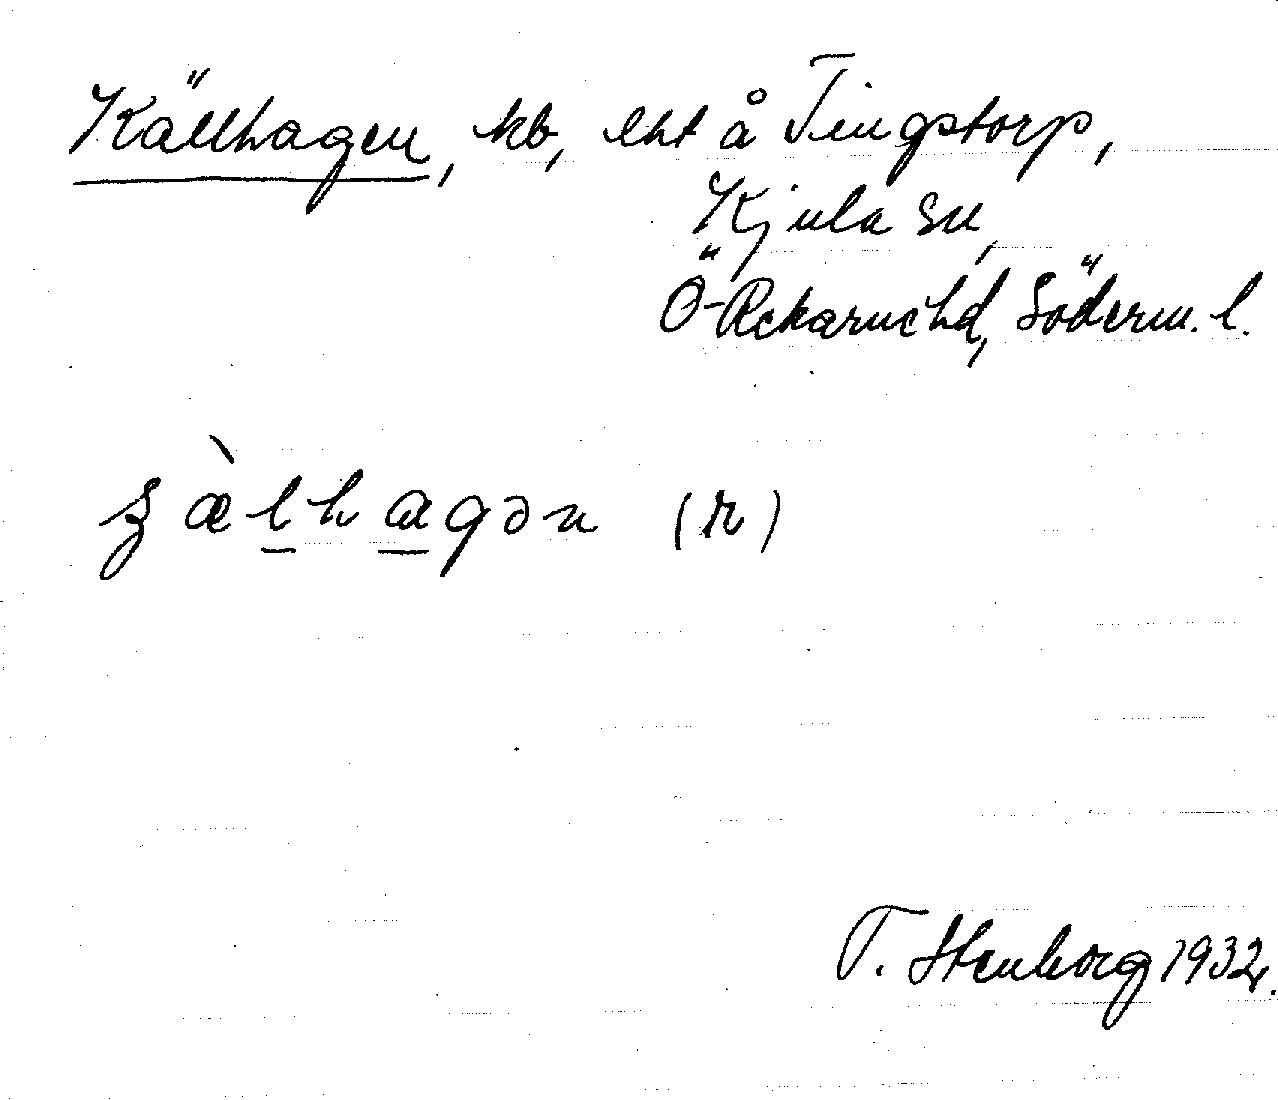 Källhagen, kb, eht å Tingstorp,
Kjula sn,
Ö-Rekarne hd, Söderm. l.
(r)
T. Stenborg 1932.